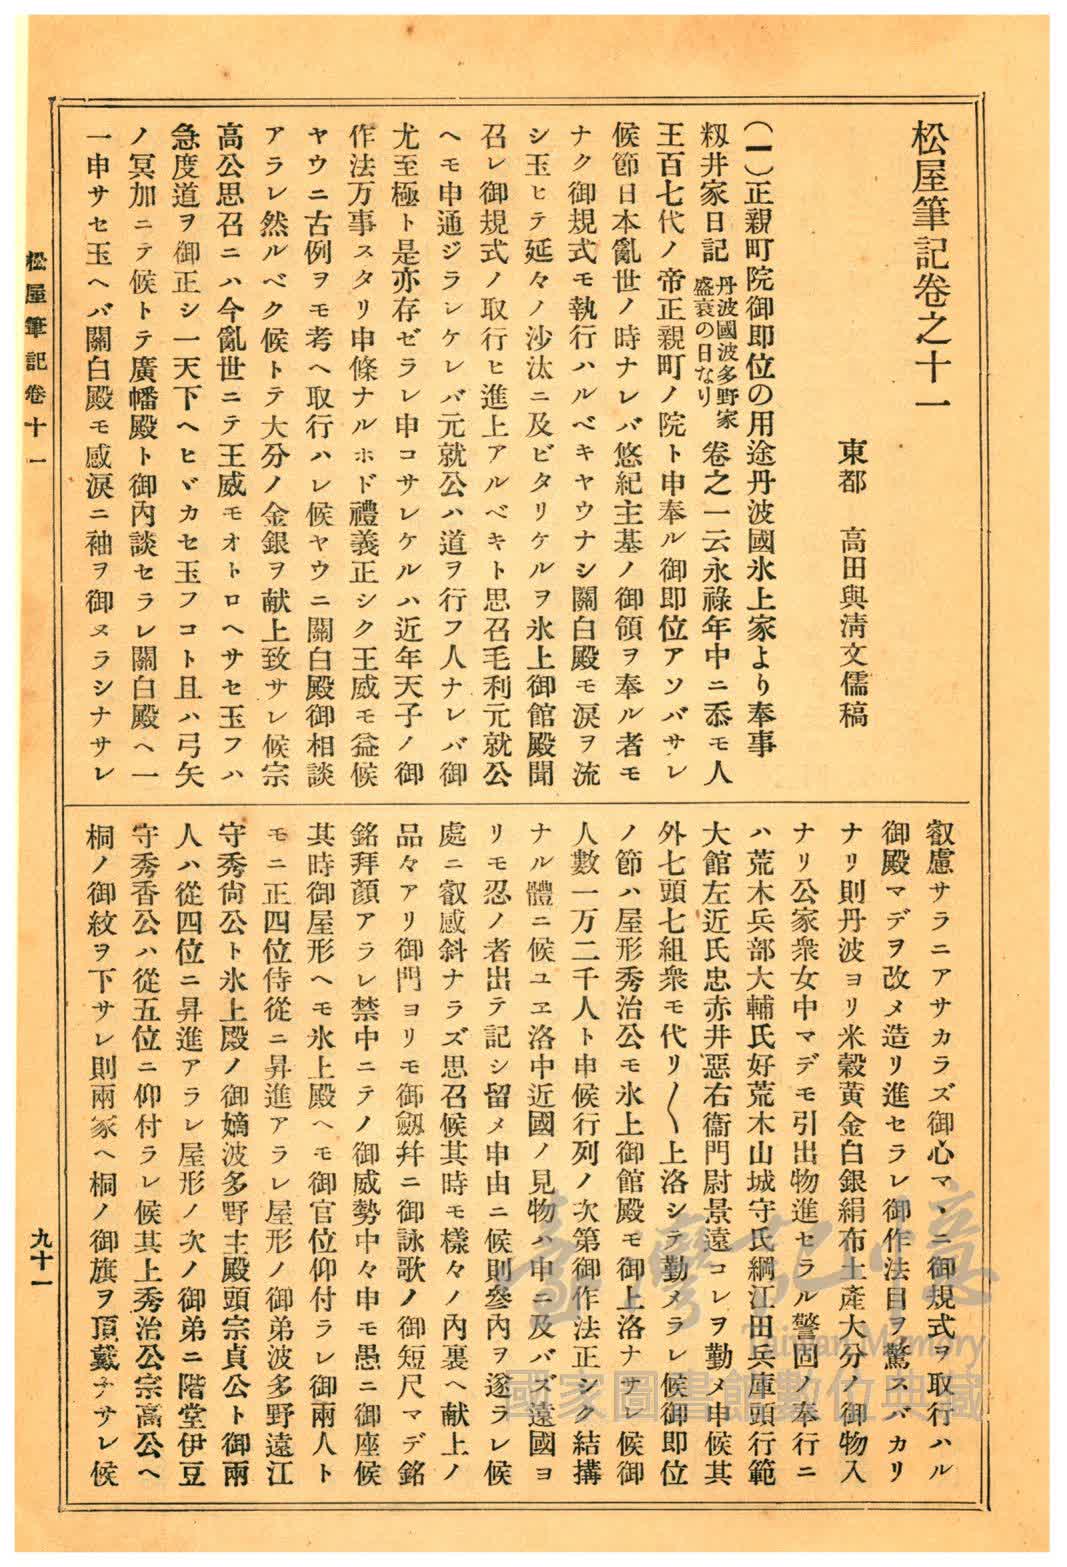 松屋筆記卷之十一
東都　高田與淸文儒稿
(一)正親町院御即位の用途丹波國氷上家より奉事
籾井家日記 丹波國波多野家盛衰の日なり 卷之一云永祿年中ニ忝モ人
王百七代ノ帝正親町ノ院ト申奉ル御即位アソバサレ
候節日本亂世ノ時ナレバ悠紀主基ノ御領ヲ奉ル者モ
ナク御規式モ執行ハルベキヤウナシ關白殿モ淚ヲ流
シ玉ヒテ延々ノ沙汰ニ及ビタリケルヲ氷上御館殿聞
召レ御規式ノ取行ヒ進上アルベキト思召毛利元就公
ヘモ申通ジラレケレバ元就公ハ道ヲ行フ人ナレバ御
尤至極ト是亦存ゼラレ申コサレケルハ近年天子ノ御
作法万事スタリ申條ナルホド禮義正シク王威モ益候
ヤウニ古例ヲモ考ヘ取行ハレ候ヤウニ關白殿御相談
アラレ然ルベク候トテ大分ノ金銀ヲ献上致サレ候宗
高公思召ニハ今亂世ニテ王威モオトロヘサセ玉フハ
急度道ヲ御正シ一天下ヘヒヾカセ玉フコト且ハ弓矢
ノ冥加ニテ候トテ廣幡殿ト御內談セラレ關白殿ヘ一
一申サセ玉ヘバ關白殿モ感淚ニ袖ヲ御ヌラシナサレ
叡慮サラニアサカラズ御心マヽニ御規式ヲ取行ハル
御殿マデヲ改メ造リ進セラレ御作法目ヲ驚スバカリ
ナリ則丹波ヨリ米穀黃金白銀絹布土產大分ノ御物入
ナリ公家衆女中マデモ引出物進セラル警固ノ奉行ニ
ハ荒木兵部大輔氏好荒木山城守氏綱江田兵庫頭行範
大館左近氏忠赤井惡右衞門尉景遠コレヲ勤メ申候其
外七頭七組衆モ代リ〱上洛シテ勤メラレ候御即位
ノ節ハ屋形秀治公モ氷上御館殿モ御上洛ナサレ候御
人數一万二千人ト申候行列ノ次第御作法正シク結搆
ナル體ニ候ユヱ洛中近國ノ見物ハ申ニ及バズ遠國ヨ
リモ忍ノ者出テ記シ留メ申由ニ候則參內ヲ遂ラレ候
處ニ叡感斜ナラズ思召候其時モ樣々ノ內裏ヘ献上ノ
品々アリ御門ヨリモ御劔幷ニ御詠歌ノ御短尺マデ銘
銘拜顏アラレ禁中ニテノ御威勢中々申モ愚ニ御座候
其時御屋形ヘモ氷上殿ヘモ御官位仰付ラレ御兩人ト
モニ正四位侍從ニ昇進アラレ屋形ノ御弟波多野遠江
守秀尙公ト氷上殿ノ御嫡波多野主殿頭宗貞公ト御兩
人ハ從四位ニ昇進アラレ屋形ノ次ノ御弟ニ階堂伊豆
守秀香公ハ從五位ニ仰付ラレ候其上秀治公宗高公ヘ
桐ノ御紋ヲ下サレ則兩家ヘ桐ノ御旗ヲ頂戴ナサレ候
松屋筆記卷十一
九十一
臺灣記憶
Taiwan Memory
國家圖書館數位典藏